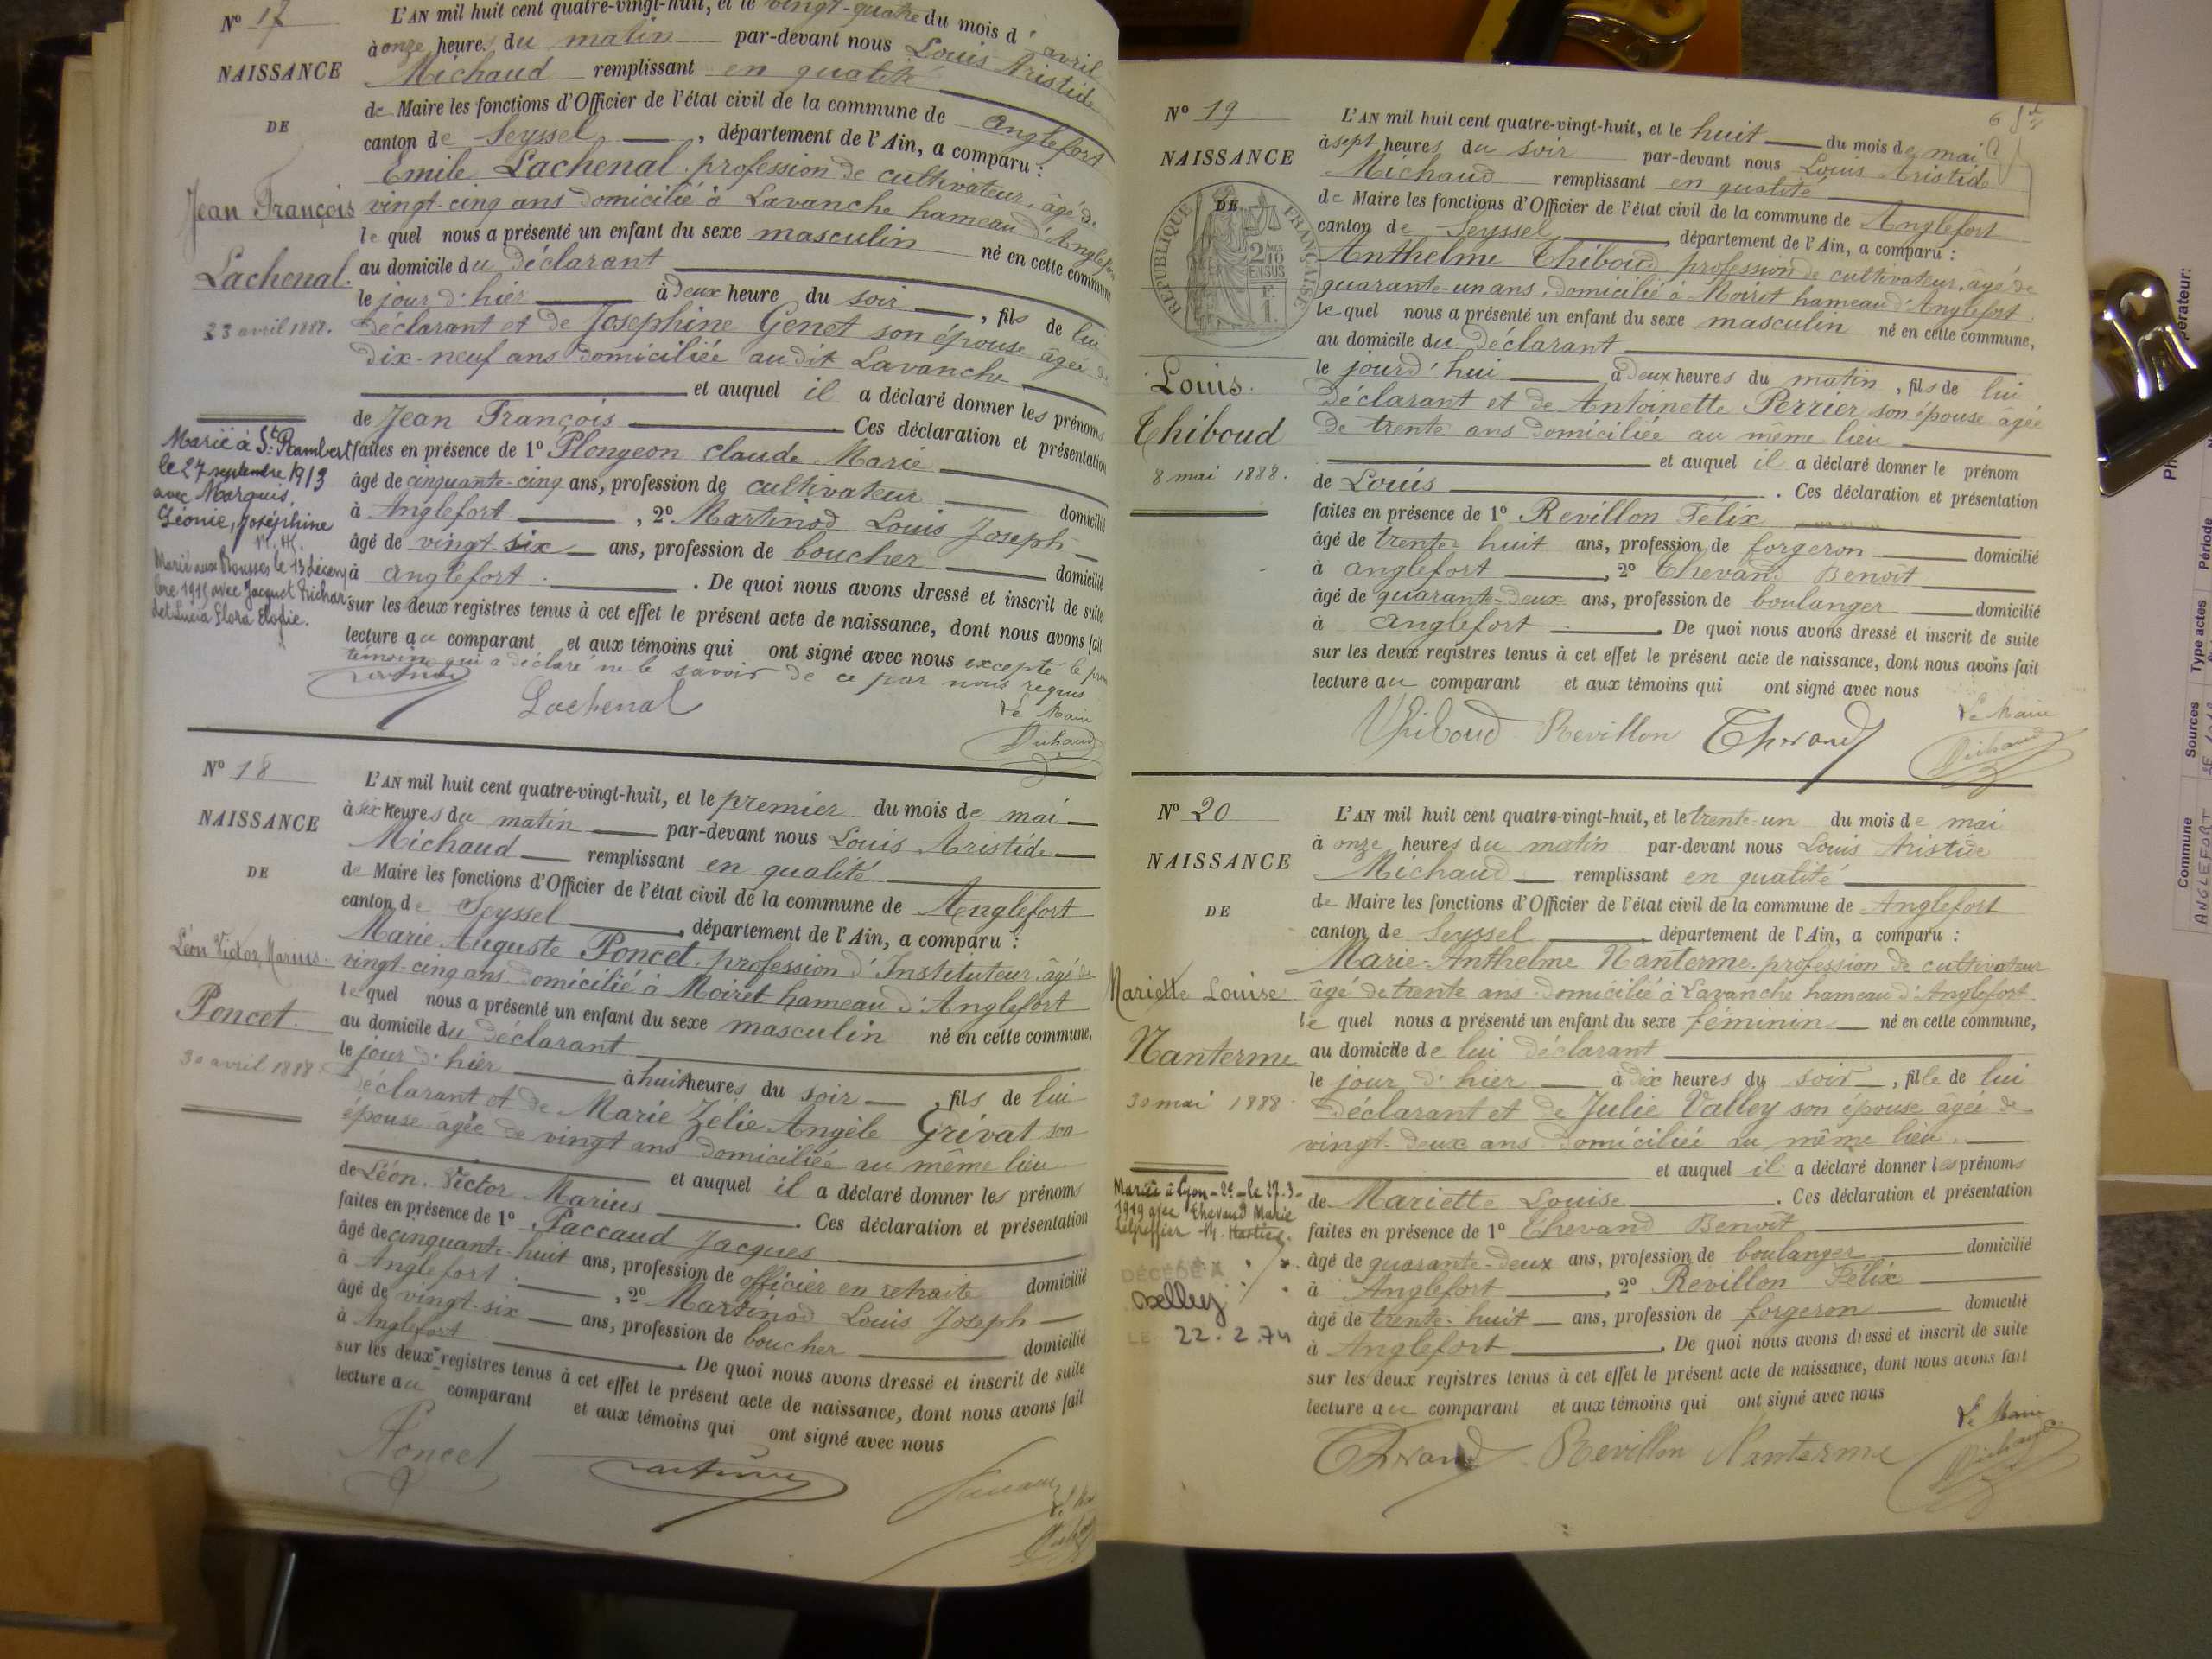 Nº 17
NAISSANCE
DE
Jean François
Lachenal.
23 avril 1888.
Marié à St Rambert
le 27 septembre 1913
avec Marquis,
Léonie, Joséphine
Marié aux Rousses le 13 décem
bre 1915 avec Jacquet
Lucia Flora Elodie.
L'AN mil huit cent quatre-vingt-huit, et le vingt-quatre du mois d'avril
à onze heures du matin par-devant nous Louis Aristide
Michaud remplissant en qualité
de Maire les fonctions d'Officier de l'état civil de la commune de Anglefort
canton de Seyssel, département de l'Ain, a comparu :
Emile Lachenal, profession de cultivateur, âgé de
vingt-cinq ans domicilié à Lavanche hameau d'Anglefort
le quel nous a présenté un enfant du sexe masculin né en cette commune
au domicile du déclarant
le jour d'hier à deux heure du soir, fils de lui
déclarant et de Josephine Genet son épouse âgée de
dix-neuf ans domiciliée audit Lavanche
et auquel il a déclaré donner les prénoms
de Jean François. Ces déclaration et présentation
faites en présence de 1º Plongeon claude Marie
âgé de cinquante-cinq ans, profession de cultivateur domicilié
à Anglefort, 2º Martinod Louis Joseph
âgé de vingt-six ans, profession de boucher domicilié
à anglefort. De quoi nous avons dressé et inscrit de suite
sur les deux registres tenus à cet effet le présent acte de naissance, dont nous avons fait
lecture au comparant et aux témoins qui ont signé avec nous excepté le
témoin qui a déclaré ne le savoir de ce par nous requis
Lachenal
Le Maire
Michaud
Nº 18
NAISSANCE
DE
Léon Victor Marius.
Poncet.
30 avril 1888
L'AN mil huit cent quatre-vingt-huit, et le premier du mois de mai
à six heures du matin par-devant nous Louis Aristide
Michaud remplissant en qualité
de Maire les fonctions d'Officier de l'état civil de la commune de Anglefort
canton de Seyssel, département de l'Ain, a comparu :
Marie Auguste Poncet, profession d'Instituteur, âgé de
vingt-cinq ans domicilié à Moiret hameau d'Anglefort
le quel nous a présenté un enfant du sexe masculin né en cette commune,
au domicile du déclarant
le jour d'hier à huit heures du soir, fils de lui
déclarant et de Marie Zélie Angèle Grivat son
épouse âgée de vingt ans domiciliée au même lieu
et auquel il a déclaré donner les prénoms
de Léon. Victor Marius. Ces déclaration et présentation
faites en présence de 1º Paccaud Jacques
âgé de cinquante-huit ans, profession de officier en retraite domicilié
à Anglefort, 2º Martinod Louis Joseph
âgé de vingt-six ans, profession de boucher domicilié
à Anglefort. De quoi nous avons dressé et inscrit de suite
sur les deux registres tenus à cet effet le présent acte de naissance, dont nous avons fait
lecture au comparant et aux témoins qui ont signé avec nous
Poncet
Nº 19
NAISSANCE
DE
RÉPUBLIQUE FRANÇAISE
Louis.
Thiboud
8 mai 1888.
6
L'AN mil huit cent quatre-vingt-huit, et le huit du mois de mai
à sept heures du soir par-devant nous Louis Aristide
Michaud remplissant en qualité
de Maire les fonctions d'Officier de l'état civil de la commune de Anglefort
canton de Seyssel, département de l'Ain, a comparu :
Anthelme Thiboud profession de cultivateur, âgé de
quarante-un ans, domicilié à Moiret hameau d'Anglefort.
le quel nous a présenté un enfant du sexe masculin né en cette commune,
au domicile du déclarant
le jour d'hui à deux heures du matin, fils de lui
déclarant et de Antoinette Perrier son épouse âgée
de trente ans domiciliée au même lieu
et auquel il a déclaré donner le prénom
de Louis. Ces déclaration et présentation
faites en présence de 1º Revillon Félix
âgé de trente huit ans, profession de forgeron domicilié
à anglefort, 2º Thevand Benoît
âgé de quarante-deux ans, profession de boulanger domicilié
à anglefort. De quoi nous avons dressé et inscrit de suite
sur les deux registres tenus à cet effet le présent acte de naissance, dont nous avons fait
lecture au comparant et aux témoins qui ont signé avec nous
Thiboud Revillon Thevand
Le Maire
Michaud
Nº 20
NAISSANCE
DE
Mariette Louise
Nanterme
30 mai 1888.
Mariée à Lyon-2e-le 27-3-
1919 avec Thevand Marie
DÉCÉDÉ A
LE 22.2.74
L'AN mil huit cent quatre-vingt-huit, et le trente-un du mois de mai
à onze heures du matin par-devant nous Louis Aristide
Michaud remplissant en qualité
de Maire les fonctions d'Officier de l'état civil de la commune de Anglefort
canton de Seyssel, département de l'Ain, a comparu :
Marie-Anthelme Nanterme, profession de cultivateur
âgé de trente ans domicilié à Lavanche hameau d'Anglefort
le quel nous a présenté un enfant du sexe féminin né en cette commune,
au domicile de lui déclarant
le jour d'hier à dix heures du soir, fille de lui
déclarant et de Julie Valley son épouse âgée de
vingt-deux ans domiciliée au même lieu.
et auquel il a déclaré donner les prénoms
de Mariette Louise. Ces déclaration et présentation
faites en présence de 1º Thevand Benoît
âgé de quarante-deux ans, profession de boulanger domicilié
à Anglefort, 2º Revillon Félix
âgé de trente-huit ans, profession de forgeron domicilié
à Anglefort. De quoi nous avons dressé et inscrit de suite
sur les deux registres tenus à cet effet le présent acte de naissance, dont nous avons fait
lecture au comparant et aux témoins qui ont signé avec nous
Thevand Revillon Nanterme
Le Maire
Michaud
Commune
ANGLEFORT
Sources
Type actes
Période